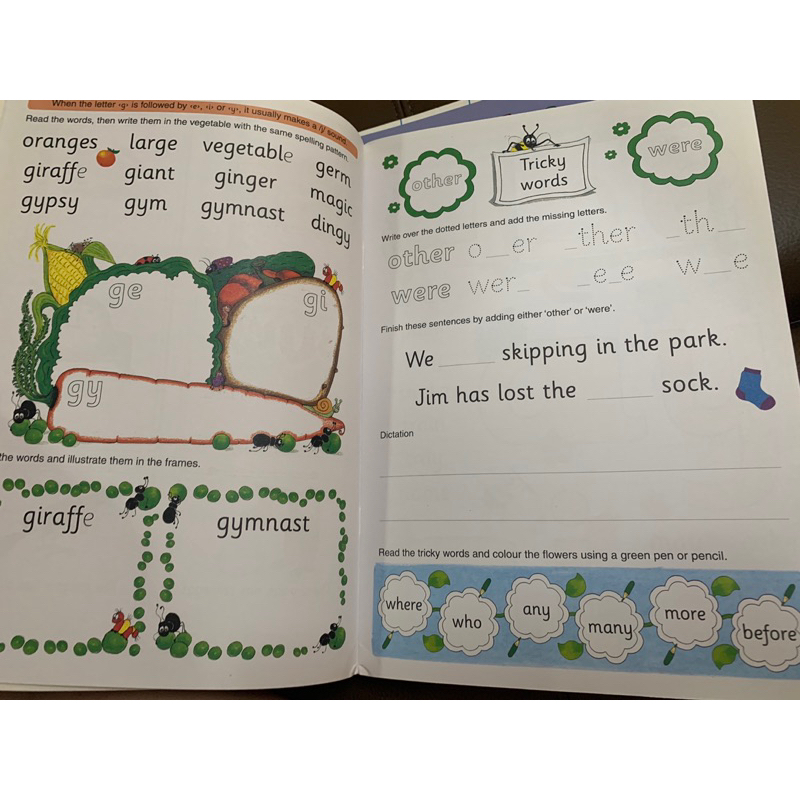 When the letter ‹g› is followed by ‹e›, ‹i› or ‹y›, it usually makes a /j/ sound.
Read the words, then write them in the vegetable with the same spelling pattern.
oranges large vegetable germ
giraffe giant ginger magic
gypsy gym gymnast dingy
ge
gi
gy
the words and illustrate them in the frames.
giraffe gymnast
other
Tricky
words
were
Write over the dotted letters and add the missing letters.
other o__er _ther _th__
were wer_ _e_e w__e
Finish these sentences by adding either 'other' or 'were'.
We _____ skipping in the park.
Jim has lost the ______ sock.
Dictation
Read the tricky words and colour the flowers using a green pen or pencil.
where who any many more before